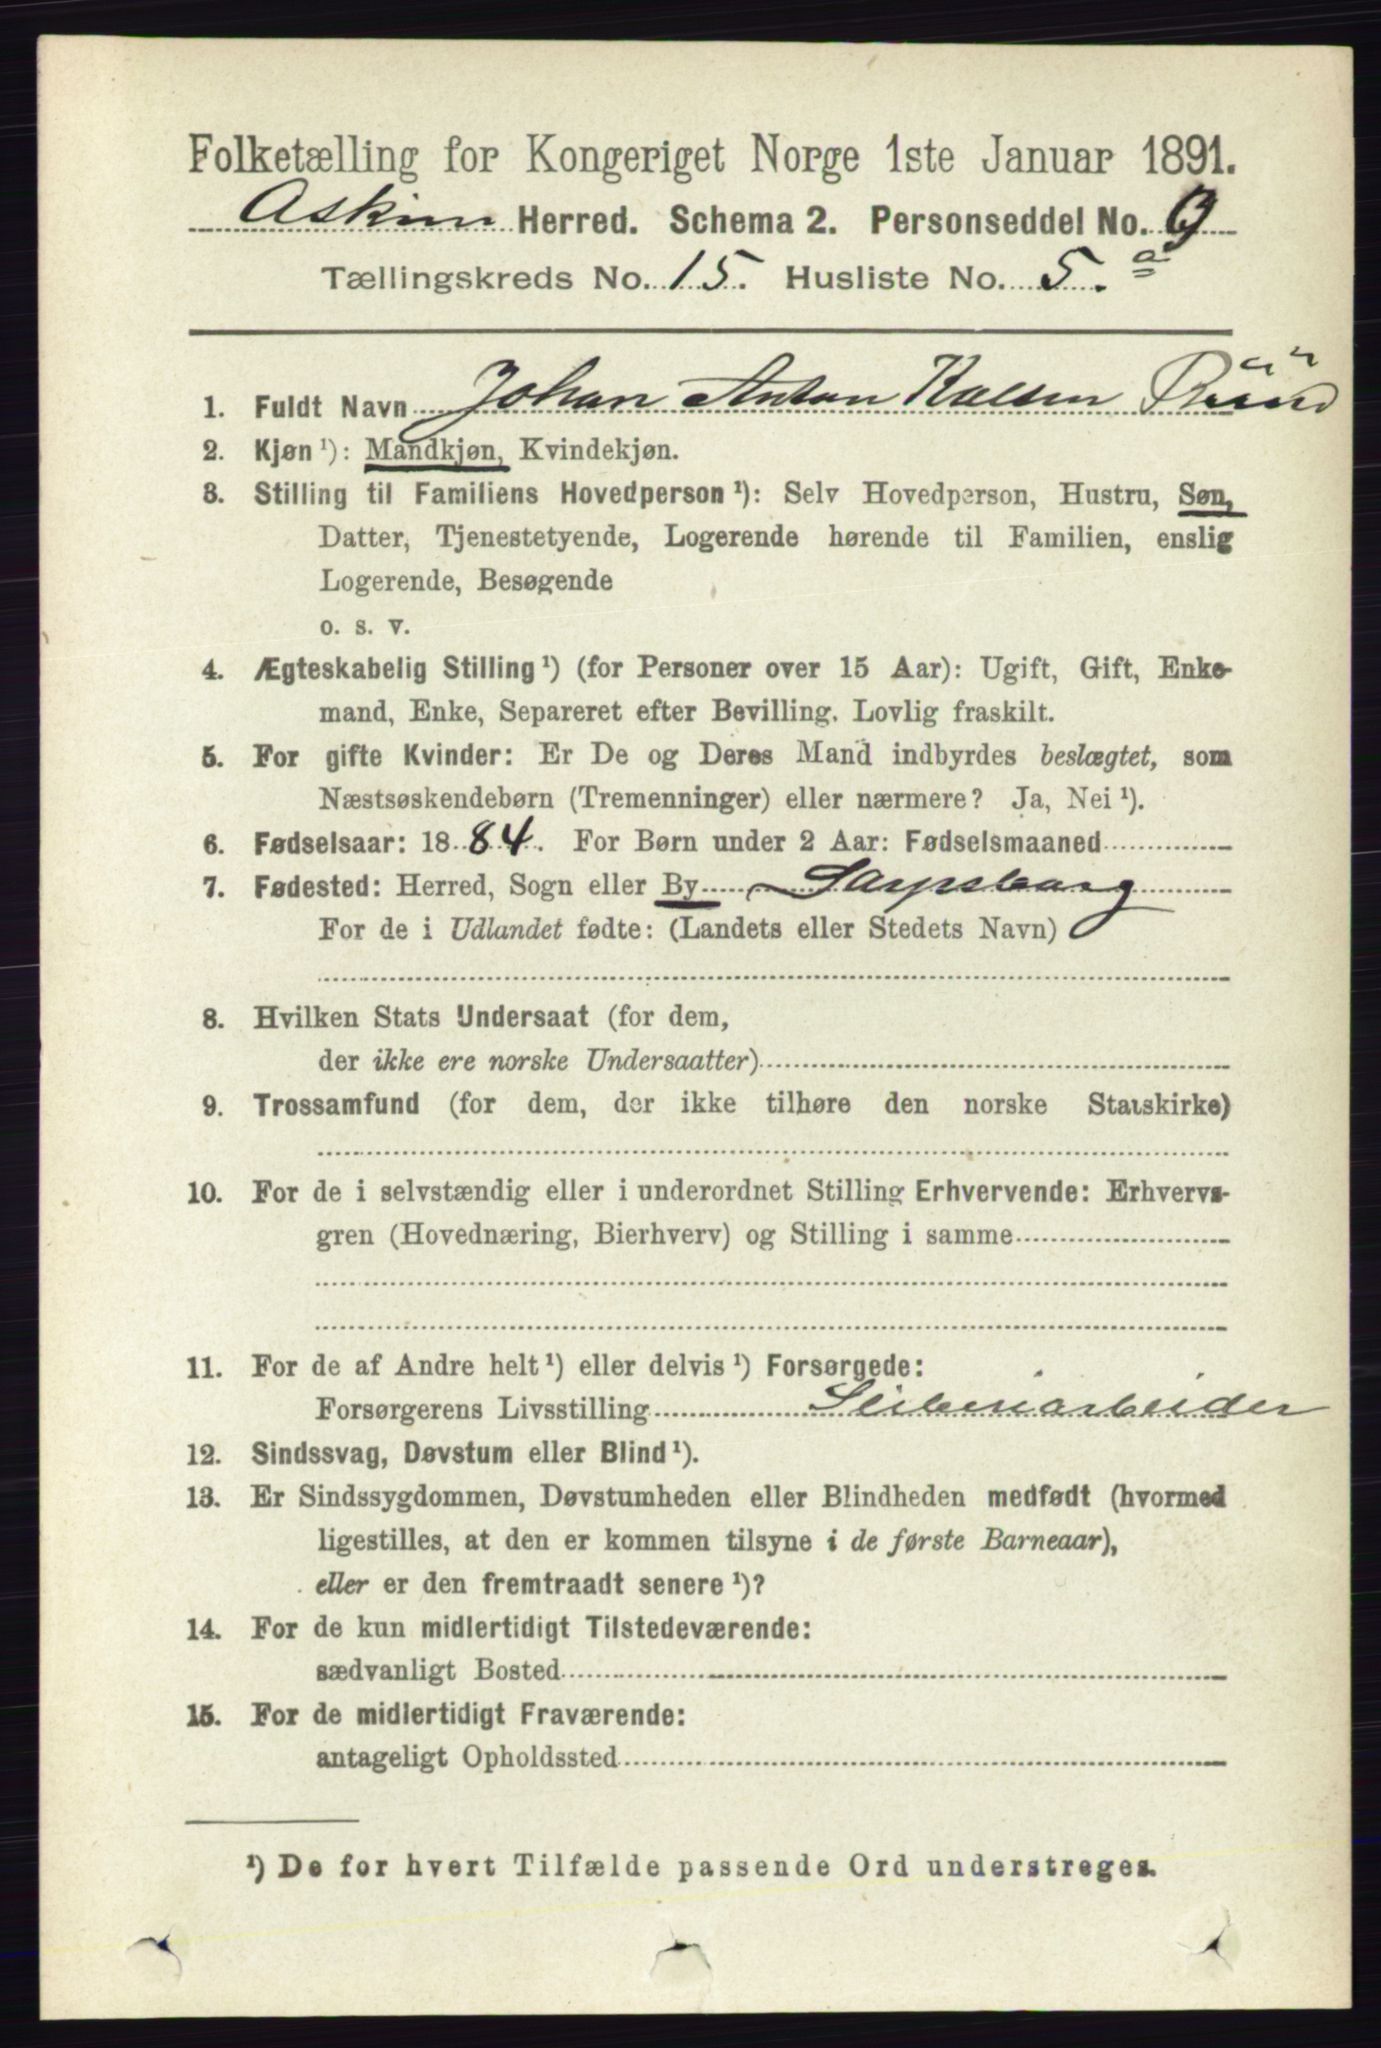 Folketælling for Kongeriget Norge 1ste Januar 1891.
Askim Herred. Schema 2. Personseddel No. 9
Tællingskreds No. 15. Husliste No. 5. a
1. Fuldt Navn Johan Anton Kalsen
2. Kjøn¹): Mandkjøn, Kvindekjøn.
3. Stilling til Familiens Hovedperson¹): Selv Hovedperson, Hustru, Søn,
Datter, Tjenestetyende, Logerende hørende til Familien, enslig
Logerende, Besøgende
o. s. v.
4. Ægteskabelig Stilling¹) (for Personer over 15 Aar): Ugift, Gift, Enke-
mand, Enke, Separeret efter Bevilling. Lovlig fraskilt.
5. For gifte Kvinder: Er De og Deres Mand indbyrdes beslægtet, som
Næstsøskendebørn (Tremenninger) eller nærmere? Ja, Nei¹).
6. Fødselsaar: 1884. For Børn under 2 Aar: Fødselsmaaned
7. Fødested: Herred, Sogn eller By Sarpsborg
For de i Udlandet fødte: (Landets eller Stedets Navn)
8. Hvilken Stats Undersaat (for dem,
der ikke ere norske Undersaatter)
9. Trossamfund (for dem, der ikke tilhøre den norske Statskirke)
10. For de i selvstændig eller i underordnet Stilling Erhvervende: Erhvervs-
gren (Hovednæring, Bierhverv) og Stilling i samme
11. For de af Andre helt¹) eller delvis¹) Forsørgede:
Forsørgerens Livsstilling Sliberiarbeider
12. Sindssvag, Døvstum eller Blind¹).
13. Er Sindssygdommen, Døvstumheden eller Blindheden medfødt (hvormed
ligestilles, at den er kommen tilsyne i de første Barneaar),
eller er den fremtraadt senere¹)?
14. For de kun midlertidigt Tilstedeværende:
sædvanligt Bosted
15. For de midlertidigt Fraværende:
antageligt Opholdssted
¹) De for hvert Tilfælde passende Ord understreges.